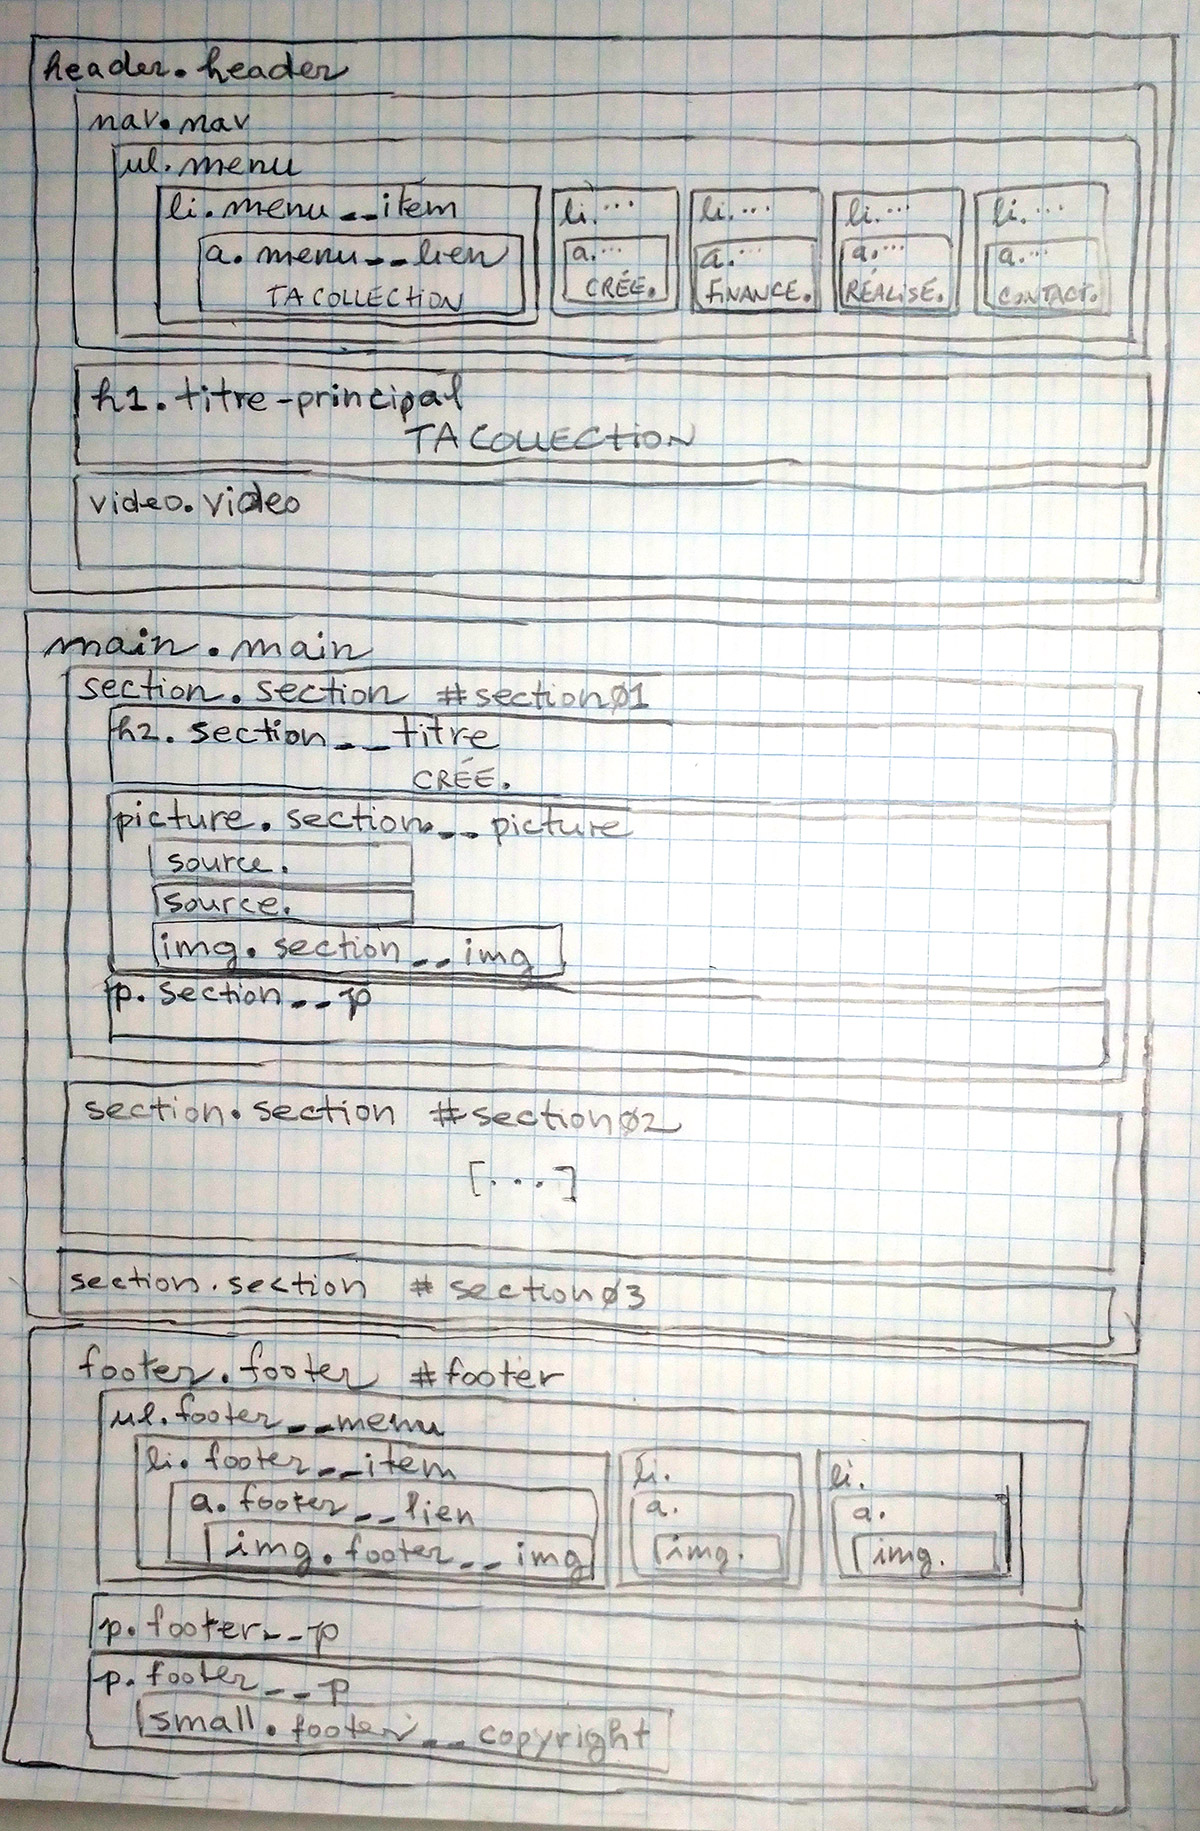 header.header
nav.nav
ul.menu
li.menu__item
a.menu__lien
TA COLLECTION
li....
a....
CRÉE.
li....
a....
FINANCE.
li....
a....
RÉALISE.
li....
a....
CONTACT.
h1.titre-principal
TA COLLECTION
video.video
main.main
section.section #section01
h2.section__titre
CRÉE.
picture.section__picture
source.
source.
img.section__img
p.section__p
section.section #section02
[...]
section.section #section03
footer.footer #footer
ul.footer__menu
li.footer__item
a.footer__lien
img.footer__img
li.
a.
img.
li.
a.
img.
p.footer__p
p.footer__p
small.footer__copyright